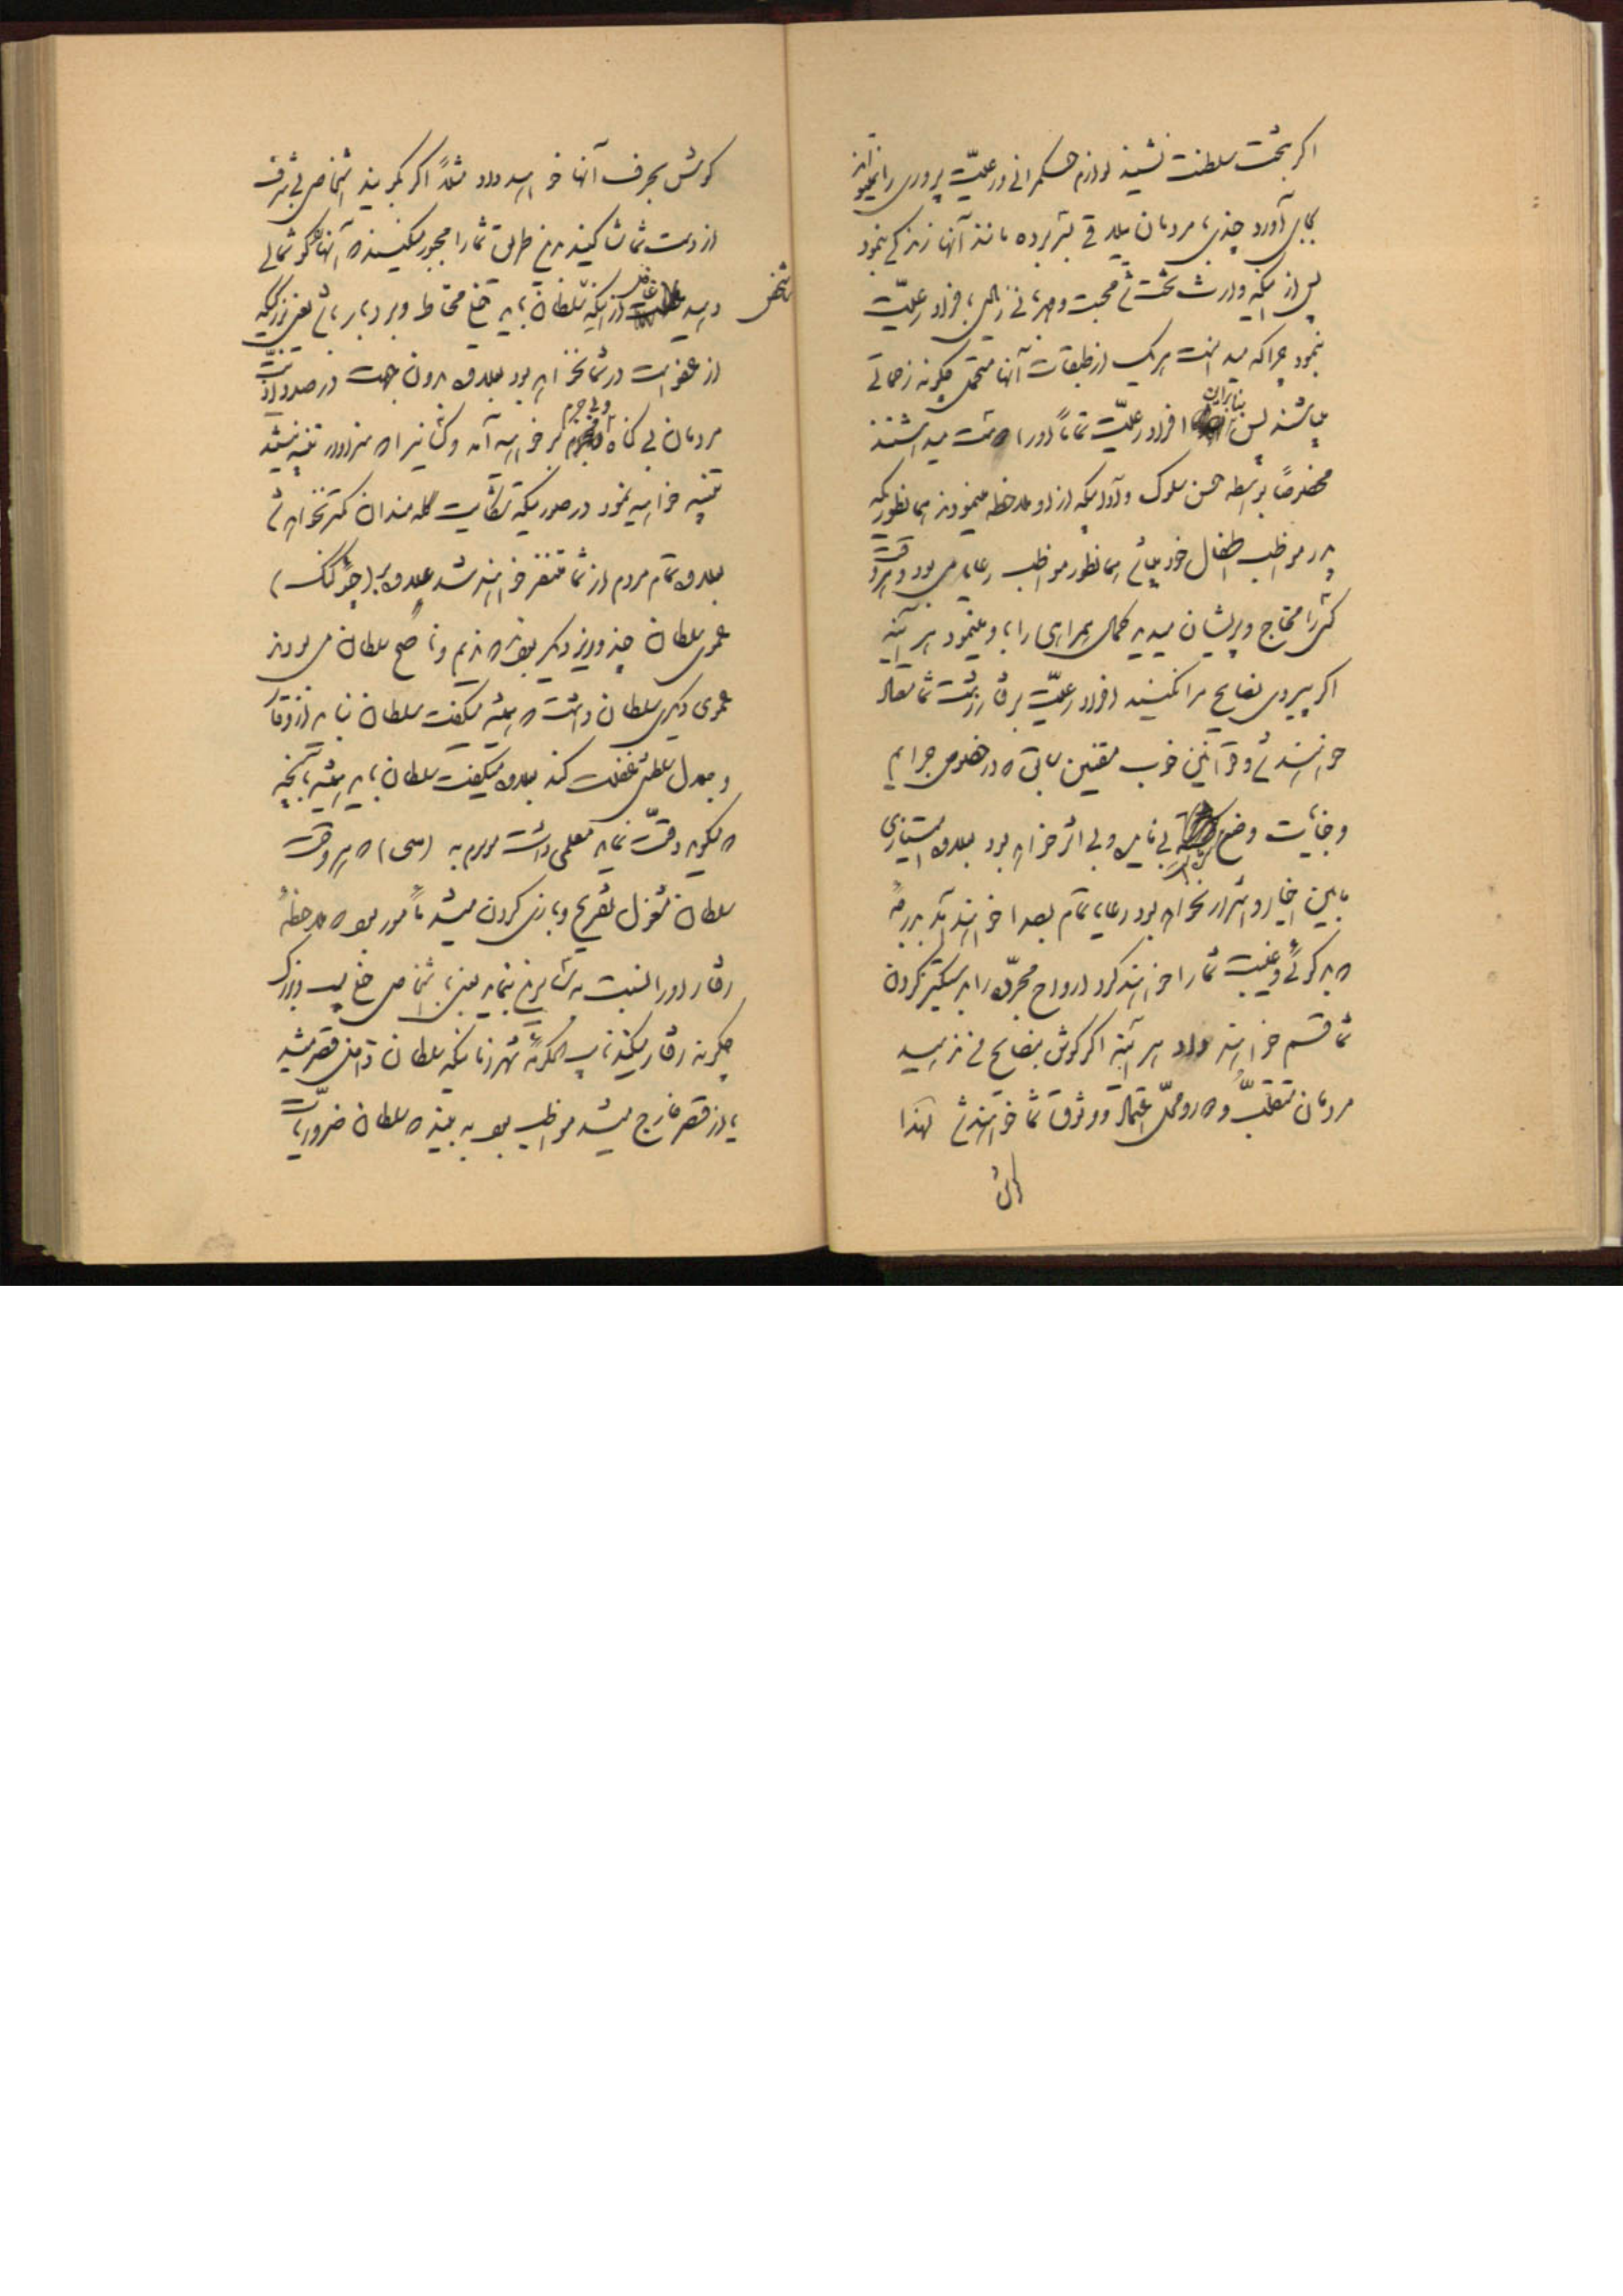 اگر بتخت سلطنت نشیند لوازم حکمرانی و رعیّت پروری را نمیتواند
بجای آورد چندی با مردمان ییلاقی بسر برده مانند آنها زندگی نمود
پس از اینکه وارث تخت شد محبت و مهربانی زیادی با افراد رعیّت
نمود چرا که میدانست هر یک از طبقات آنها متحمل چگونه زحماتی
میباشند پس بنابراین افراد رعیّت تماماً او را دوست میداشتند
مخصوصاً بواسطه حسن سلوک و آدابیکه از او ملاحظه مینمودند همانطوریکه
پدر مواظب اطفال خود میباشد همانطور مواظب رعایا می بود و هر وقت
کسی را محتاج و پریشان میدید کمال همراهی را با او مینمود هر آینه
اگر پیروی نصایح مرا نکنید افراد رعیّت برفتار زشت شما معتاد
خواهند شد و قوانین خوب مقنین سابق که در خصوص جرایم
و جنایت وضع کرده‌اند بی نایل و بی اثر خواهد بود بعلاوه امتیازی
مابین اخیار و اشرار نخواهد بود رعایا تمام بصدا خواهند آمد
که بدگوئی و غیبت شما را خواهند کرد ارواح مجرّده را بدستگیر کردن
شما قسم خواهند داد هر آینه اگر گوش بنصایح من ندهید
مردمان متقلّب و محلّ اعتماد و وثوق شما خواهند شد لهذا
گوش
گوش بحرف آنها خواهید داد مثلاً اگر بگویند اشخاص بی شرف
از دست شما شاکیند باین طریق شما را مجبور میکنند که آنها را گوشمالی
دهید غافل از اینکه سلطان باید خیلی محتاط و بردبار باشد یعنی بزرگیکه
شخص
از عفو است در شما نخواهد بود بعلاوه بدون جهت در صدد اذیت
مردمان بی گناه و بی جرم بر خواهید آمد و کسانیرا که سزاوار تنبیه نیستند
تنبیه خواهید نمود در صورتیکه شکایت گله مندان کمتر نخواهد شد
بعلاوه تمام مردم از شما متنفر خواهند شد علاوه بر (چوکنگ)
عموی سلطان چند وزیر دیگر بودند که ندیم و ناصح سلطان می بودند
عموی دیگر سلطان داشت که همیشه میگفت سلطان نباید از وقار
و جلال سلطنتی غفلت کند بعلاوه میگفت سلطان باید همیشه بآنچه
که میگوید دقّت نماید معلمی داشت موسوم به (سی) که هر وقت
سلطان مشغول تفریح و بازی کردن میشد مأمور بود که ملاحظهٔ
رفتار او را نسبت به سایرین بنماید یعنی با اشخاص خیلی پست و بزرگ
چگونه رفتار میکند نایب الحکومهٔ شهر زمانیکه سلطان داخل قصر میشد
یا از قصر خارج میشد مواظب بود به بیند که سلطان ضروریات